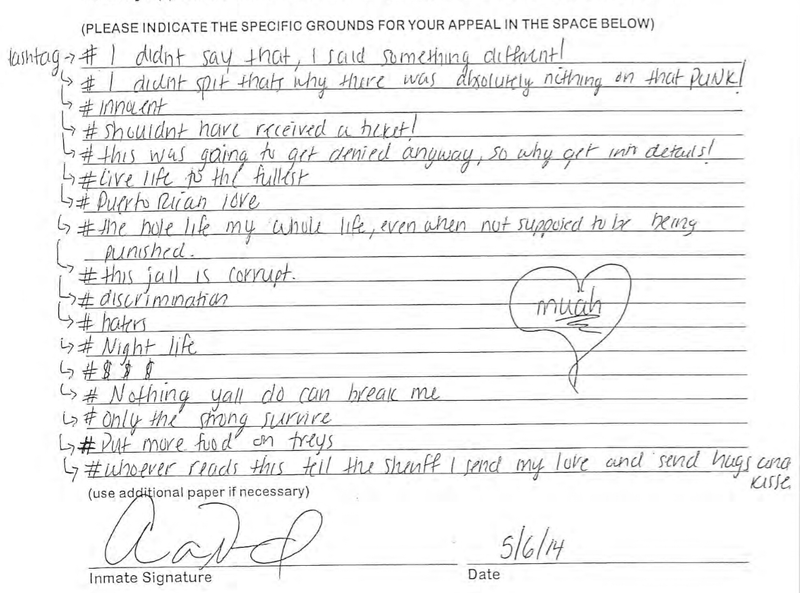 (PLEASE INDICATE THE SPECIFIC GROUNDS FOR YOUR APPEAL IN THE SPACE BELOW)
Hashtag → # I didnt say that, I said something different!
# I didnt spit thats why there was absolutely nithing on that PUNK!
# innocent
# shouldnt have received a ticket!
# this was going to get denied anyway, so why get into details!
# Live life to the fullest
# Puerto Rican love
# the hole life my whole life, even when not supposed to be being
punished.
# this jail is corrupt.
# discrimination
# haters
muah
# Night life
# $ $ $
# Nothing yall do can break me
# Only the strong survive
# Put more food on treys
# whoever reads this tell the sheriff I send my love and send hugs and
kisse
(use additional paper if necessary)
5/6/14
Inmate Signature
Date